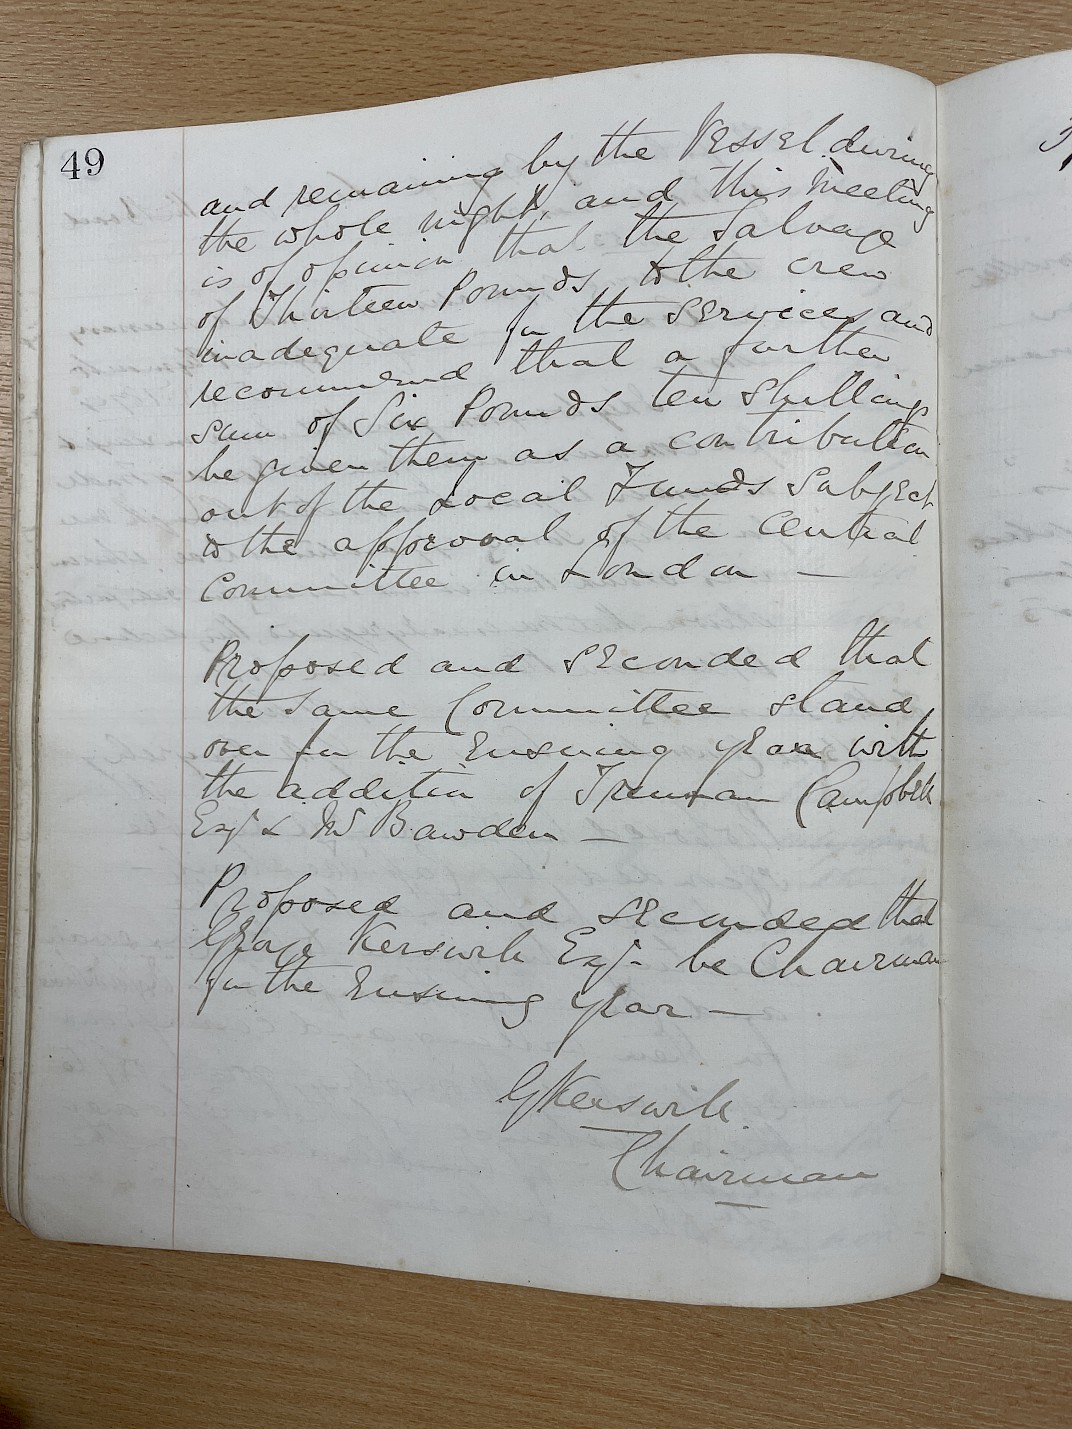 49
and remaining by the Vessel during
the whole night, and this meeting
is of opinion that the Salvage
of Thirteen Pounds to the crew
inadequate for the Services and
recommend that a further
sum of Six Pounds ten Shillings
be given them as a contribution
out of the Local Funds Subject
to the approval of the Central
Committee in London —
Proposed and seconded that
the same Committee stand
over for the Ensuing year with
the addition of Campbell
Esqr & Mr Bawden —
Proposed and seconded that
George Kerswill Esqr be Chairman
for the Ensuing year —
G Kerswill.
Chairman